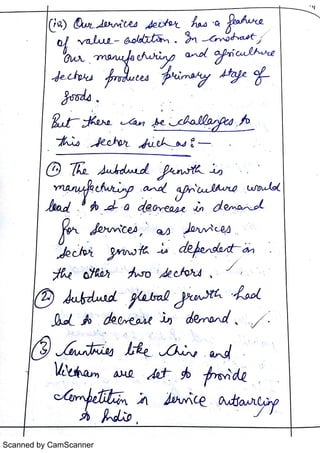 (iv) Our services sector has a feature
of value-addition. In contrast,
our manufacturing and agriculture
sectors produces primary stage of
goods.
But there can be challenges to
this sector such as :-
(1) The subdued growth in
manufacturing and agriculture would
lead to a decrease in demand
for services, as services
sector growth is dependent on
the other two sectors.
(2) Subdued global growth had
led to decrease in demand.
(3) Countries like China and
Vietnam are set to provide
competition in service outsourcing
to India.
Scanned by CamScanner